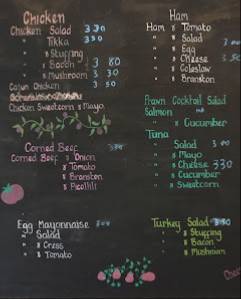 Chicken
Chicken Salad 3 30
" Tikka 3 50
" & Stuffing
" & Bacon 3 80
" & Mushroom 3 30
Cajun Chicken 3 50
Chicken Sweetcorn & Mayo
Corned Beef
Corned Beef & Onion
" & Tomato
" & Branston
" & Picalilli
Egg Mayonnaise
" Salad
" & Cress
" & Tomato
Ham
Ham & Tomato
" & Salad
" & Egg
" & Cheese 3 50
" & Coleslaw
" & Branston
Prawn Cocktail Salad
Salmon
" & Cucumber
Tuna
" Salad
" & Mayo
" & Cheese 330
" & Cucumber
" & Sweetcorn
Turkey Salad
" & Stuffing
" & Bacon
" & Mushroom